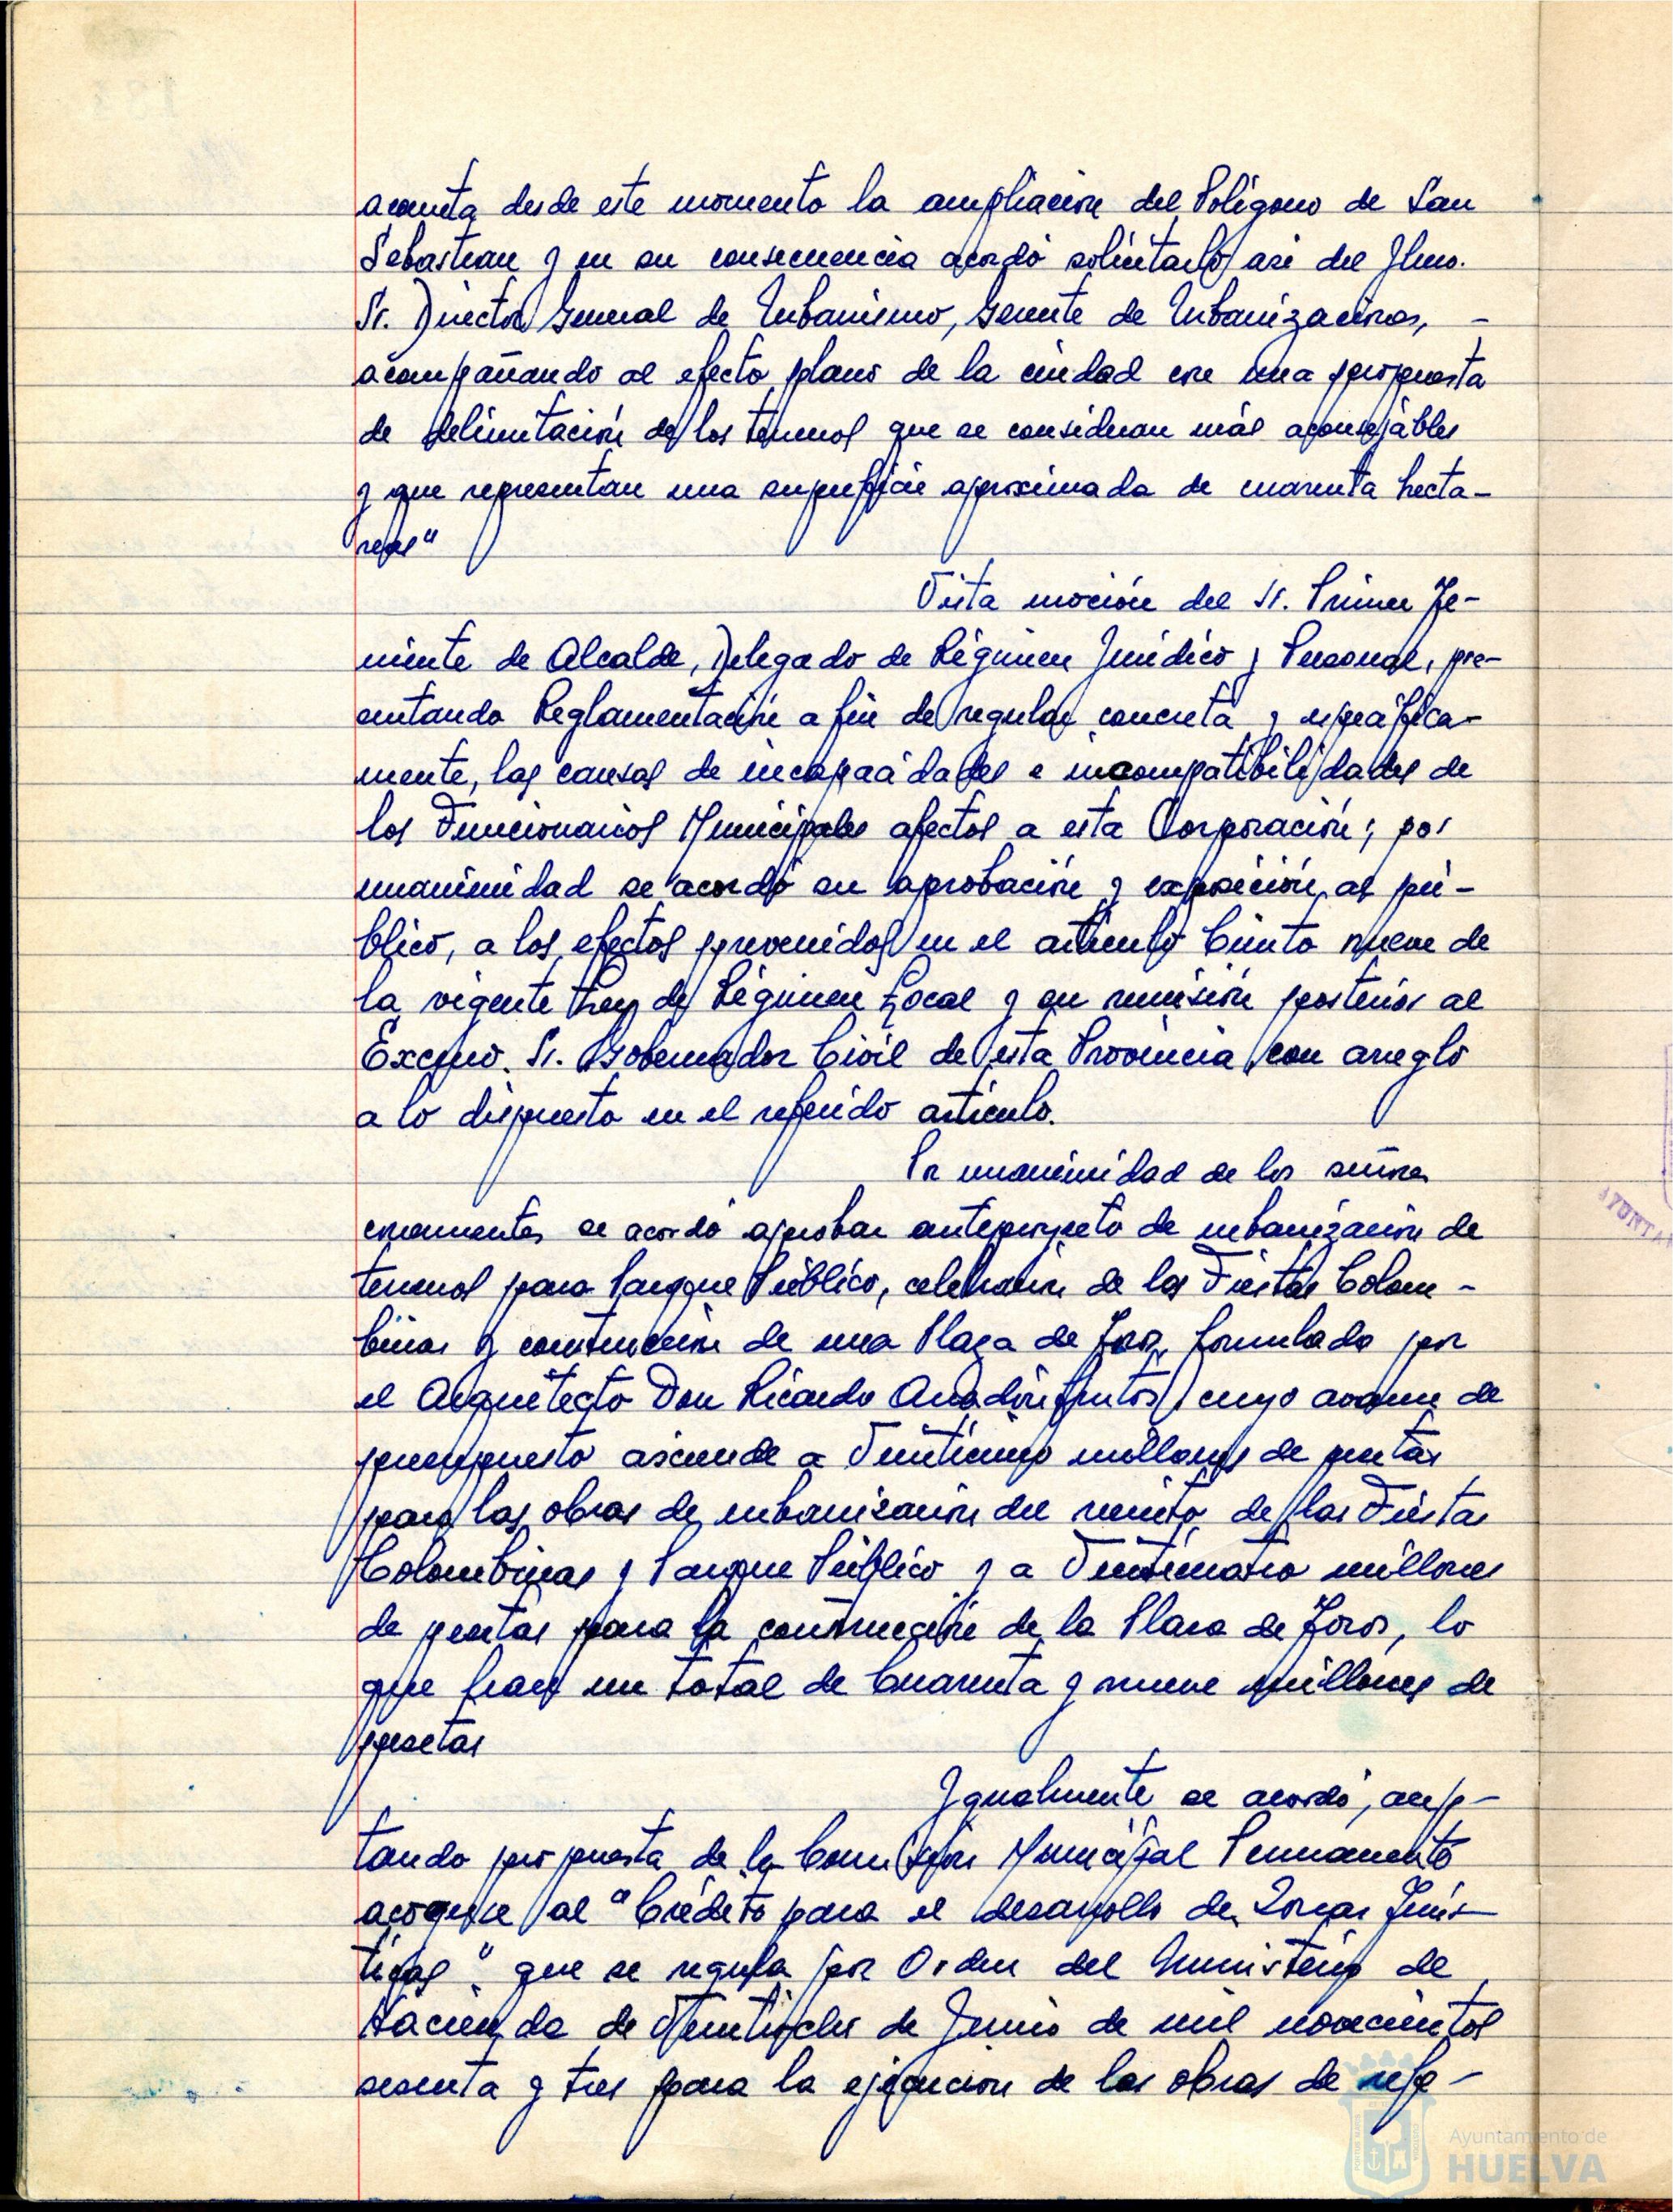 acometa desde este momento la ampliación del Polígono de San
Sebastian y en su consecuencia acordó solicitarlo asi del Ilmo.
Sr. Director General de Urbanismo, Gerente de Urbanizaciones, -
acompañando al efecto plano de la ciudad con una propuesta
de delimitación de los terrenos que se consideran más aconsejables
y que representan una superficie aproximada de cuarenta hecta-
reas"
Vista moción del Sr. Primer Te-
niente de Alcalde, Delegado de Régimen Jurídico y Personal, pre-
sentando Reglamentación a fin de regular concreta y especifica-
mente, las causas de incapacidades e incompatibilidades de
los Funcionarios Municipales afectos a esta Corporación; por
unanimidad se acordó su aprobación y exposición al pú-
blico, a los efectos prevenidos en el artículo Ciento nueve de
la vigente Ley de Régimen Local y su remisión posterior al
Excmo. Sr. Gobernador Civil de esta Provincia con arreglo
a lo dispuesto en el referido artículo.
Por unanimidad de los señores
concurrentes se acordó aprobar anteproyecto de urbanización de
terrenos para Parque Público, celebración de las Fiestas Colom-
binas y construcción de una Plaza de Toros, formulado por
el Arquitecto Don Ricardo Anadón Frutos, cuyo avance de
presupuesto asciende a Veinticinco millones de pesetas
para las obras de urbanización del recinto de las Fiestas
Colombinas y Parque Público y a Veinticuatro millones
de pesetas para la construcción de la Plaza de Toros, lo
que hacen un total de Cuarenta y nueve millones de
pesetas
Igualmente se acordó, acep-
tando propuesta de la Comisión Municipal Permanente
acogerse al "Crédito para el desarrollo de Zonas Turís-
ticas" que se regula por Orden del Ministerio de
Hacienda de Veintiocho de Junio de mil novecientos
sesenta y tres para la ejecución de las obras de refe-
AYUNTA
Ayuntamiento de
HUELVA